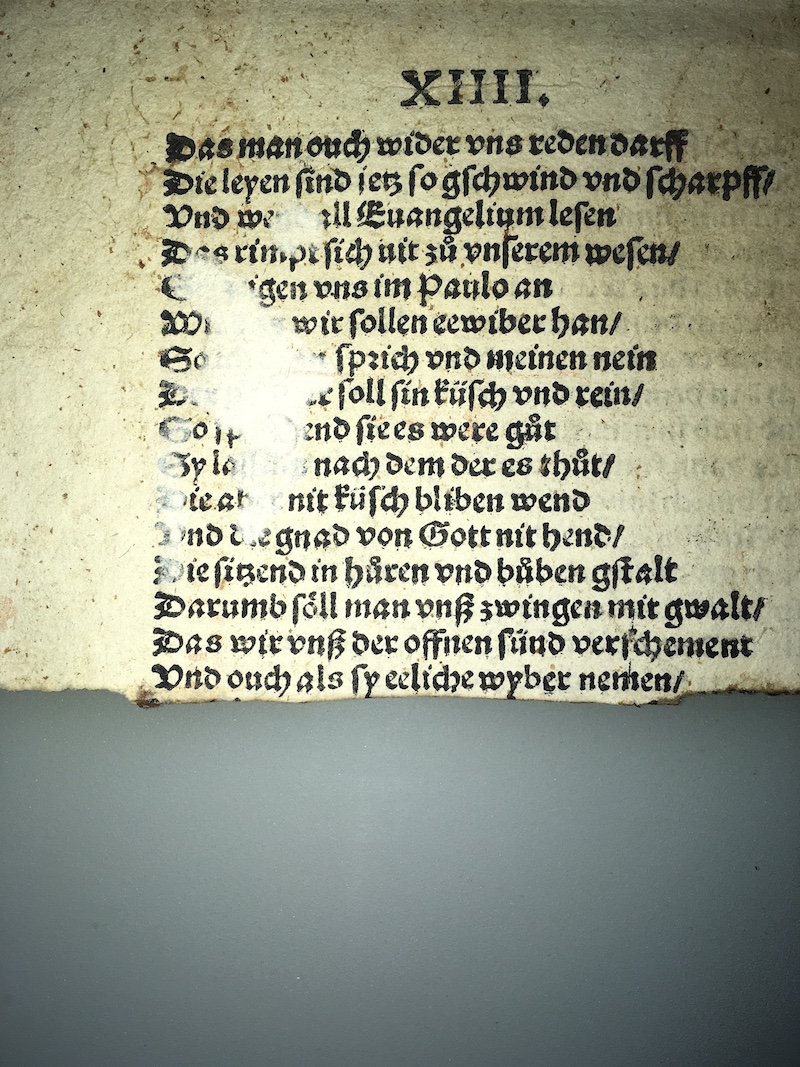 XIIII.
Das man ouch wider vns reden darff
Die leyen sind ietz so gschwind vnd scharpff/
Vnd all Euangelium lesen
Das rimpt sich nit zů vnserem wesen/
vns im Paulo an
wir sollen eewiber han/
So sprich vnd meinen nein
soll sin küsch vnd rein/
So sie es were gůt
Sy nach dem der es thůt/
Die aber nit küsch bliben wend
Vnd die gnad von Gott nit hend/
Die sitzend in hůren vnd bůben gstalt
Darumb söll man vnß zwingen mit gwalt/
Das wir vnß der offnen sünd verschement
Vnd ouch als sy eeliche wyber nemen/